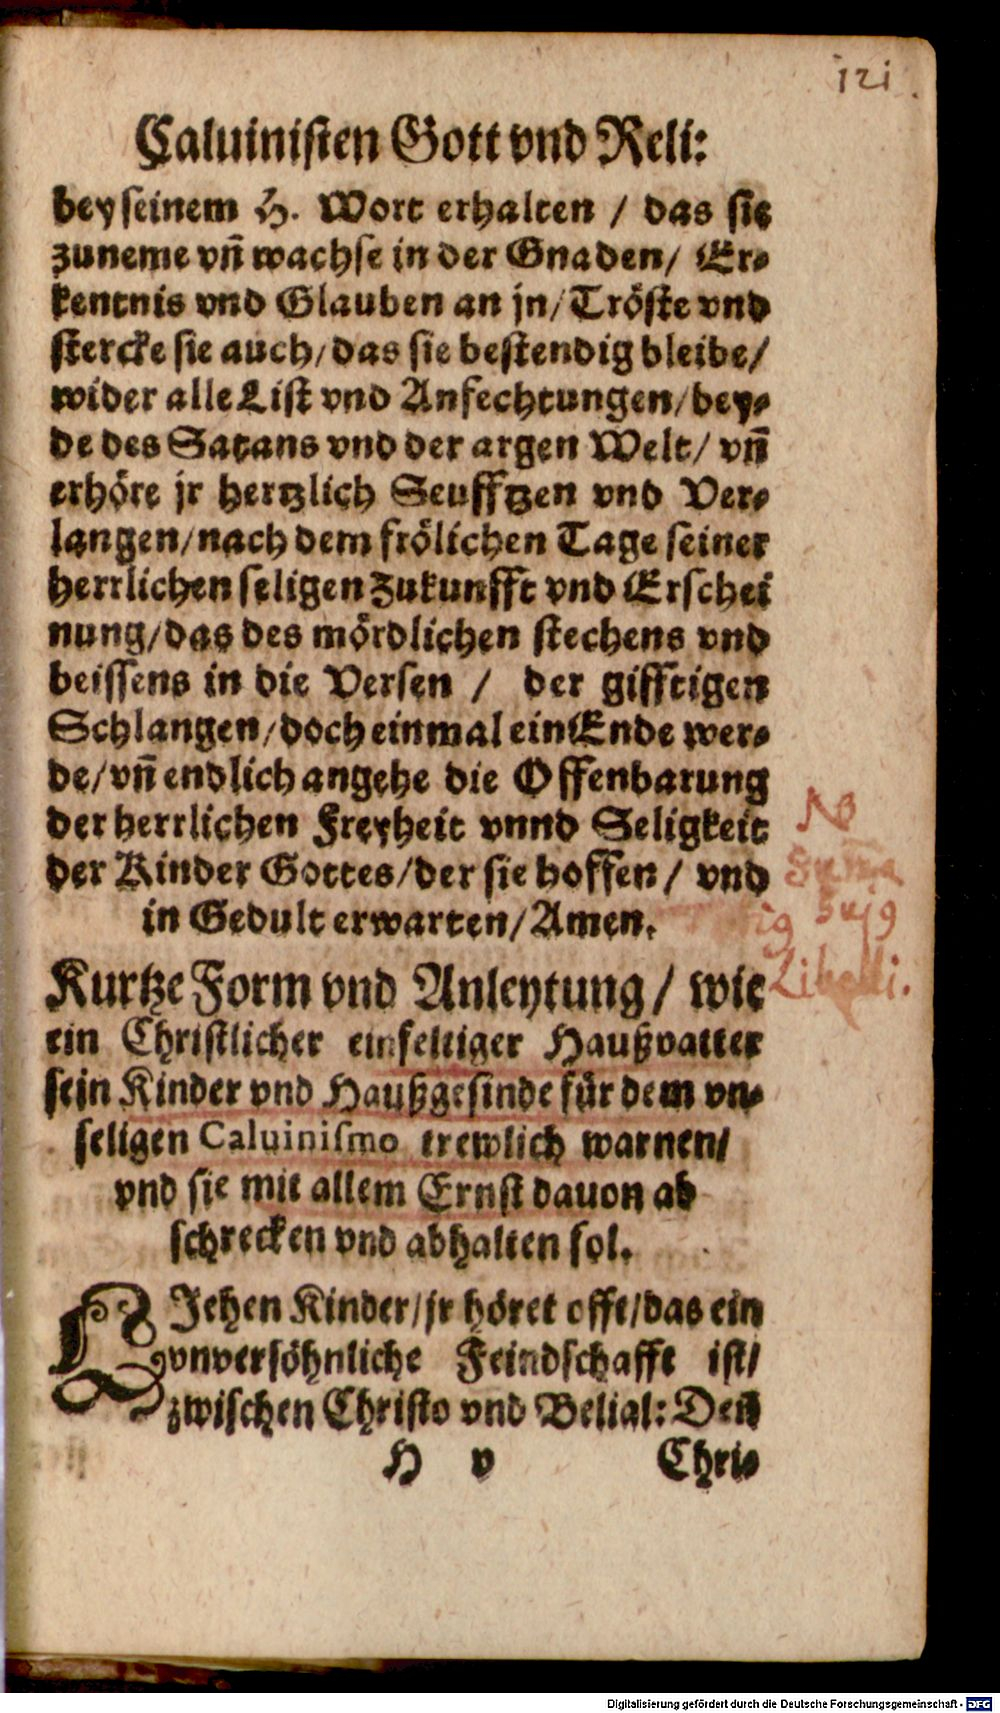 121
Caluinisten Gott vnd Reli:
bey seinem H. Wort erhalten / das sie
zuneme vn̄ wachse in der Gnaden / Er-
kentnis vnd Glauben an jn / Tröste vnd
stercke sie auch / das sie bestendig bleibe /
wider alle List vnd Anfechtungen / bey-
de des Satans vnd der argen Welt / vn̄
erhöre jr hertzlich Seufftzen vnd Ver-
langen / nach dem frölichen Tage seiner
herrlichen seligen Zukunfft vnd Erschei
nung / das des mördlichen stechens vnd
beissens in die Versen / der gifftigen
Schlangen / doch einmal ein Ende wer-
de / vn̄ endlich angehe die Offenbarung
der herrlichen Freyheit vnnd Seligkeit
der Kinder Gottes / der sie hoffen / vnd
in Gedult erwarten / Amen.
NB
Libelli.
Kurtze Form vnd Anleytung / wie
ein Christlicher einfeltiger Haußvatter
sein Kinder vnd Haußgesinde für dem vn-
seligen Caluinismo trewlich warnen /
vnd sie mit allem Ernst dauon ab
schrecken vnd abhalten sol.
LJehen Kinder / jr höret offt / das ein
vnversöhnliche Feindschafft ist /
zwischen Christo vnd Belial: Den
H v Chri-
Digitalisierung gefördert durch die Deutsche Forschungsgemeinschaft - DFG